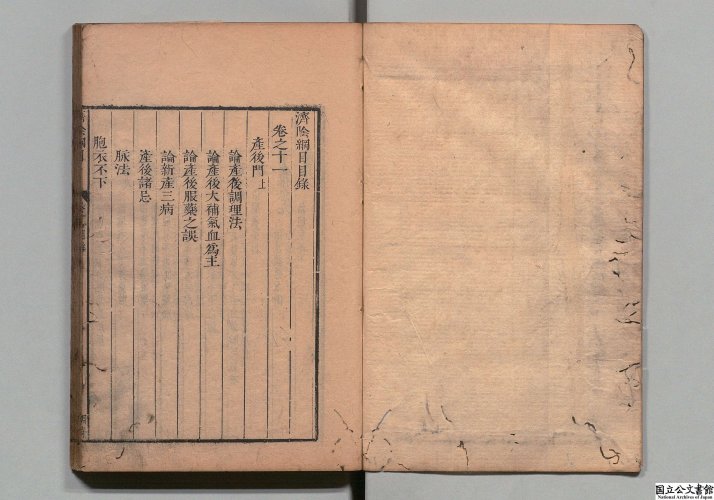 濟陰綱目目錄
卷之十一
產後門上
論產後調理法
論產後大補氣血爲主
論產後服藥之誤
論新產三病
產後諸忌
脈法
胞衣不下
国立公文書館
National Archives of Japan